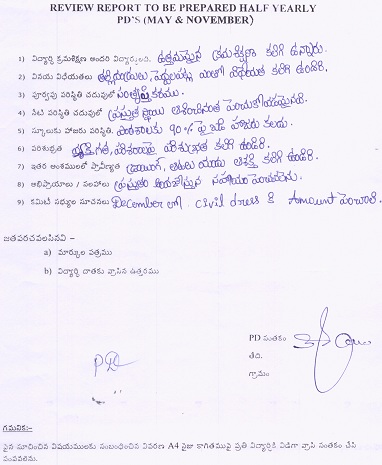 REVIEW REPORT TO BE PREPARED HALF YEARLY
PD'S (MAY & NOVEMBER)
1) విద్యార్థి క్రమశిక్షణ అందరి విద్యార్థులది. ఉత్తమమైన క్రమశిక్షణ కలిగి ఉన్నారు.
2) వినయ విధేయతలు తల్లిదండ్రులు, పెద్దలపట్ల ఎంతో విధేయత కలిగి ఉండిరి.
3) పూర్వపు పరిస్థితి చదువులో సంతృప్తికరము.
4) నేటి పరిస్థితి చదువులో ప్రస్తుత స్థాయి ఆశించినంత
5) స్కూలుకు హాజరు పరిస్థితి. పాఠశాలకు 90% పై బడి హాజరు కలదు.
6) పరిశుభ్రత వ్యక్తిగత, పరిశుభ్రత కలిగి ఉండిరి.
7) ఇతర అంశములలో ప్రావీణ్యత డ్రాయింగ్, ఆటలు యందు ఆసక్తి కలిగి ఉండిరి.
8) అభిప్రాయాలు / సలహాలు ప్రస్తుతం సహాయం పెంచవలెను.
9) కమిటీ సభ్యుల సూచనలు December లో civil dress & Amount పెంచాలి.
జతపరచవలసినవి –
a) మార్కుల పత్రము
b) విద్యార్థి దాతకు వ్రాసిన ఉత్తరము
PD సంతకం
తేది.
గ్రామం
గమనిక:–
పైన సూచించిన విషయములకు సంబంధించిన వివరణ A4 సైజు కాగితముపై ప్రతి విద్యార్థికి విడిగా వ్రాసి సంతకం చేసి
పంపవలెను.